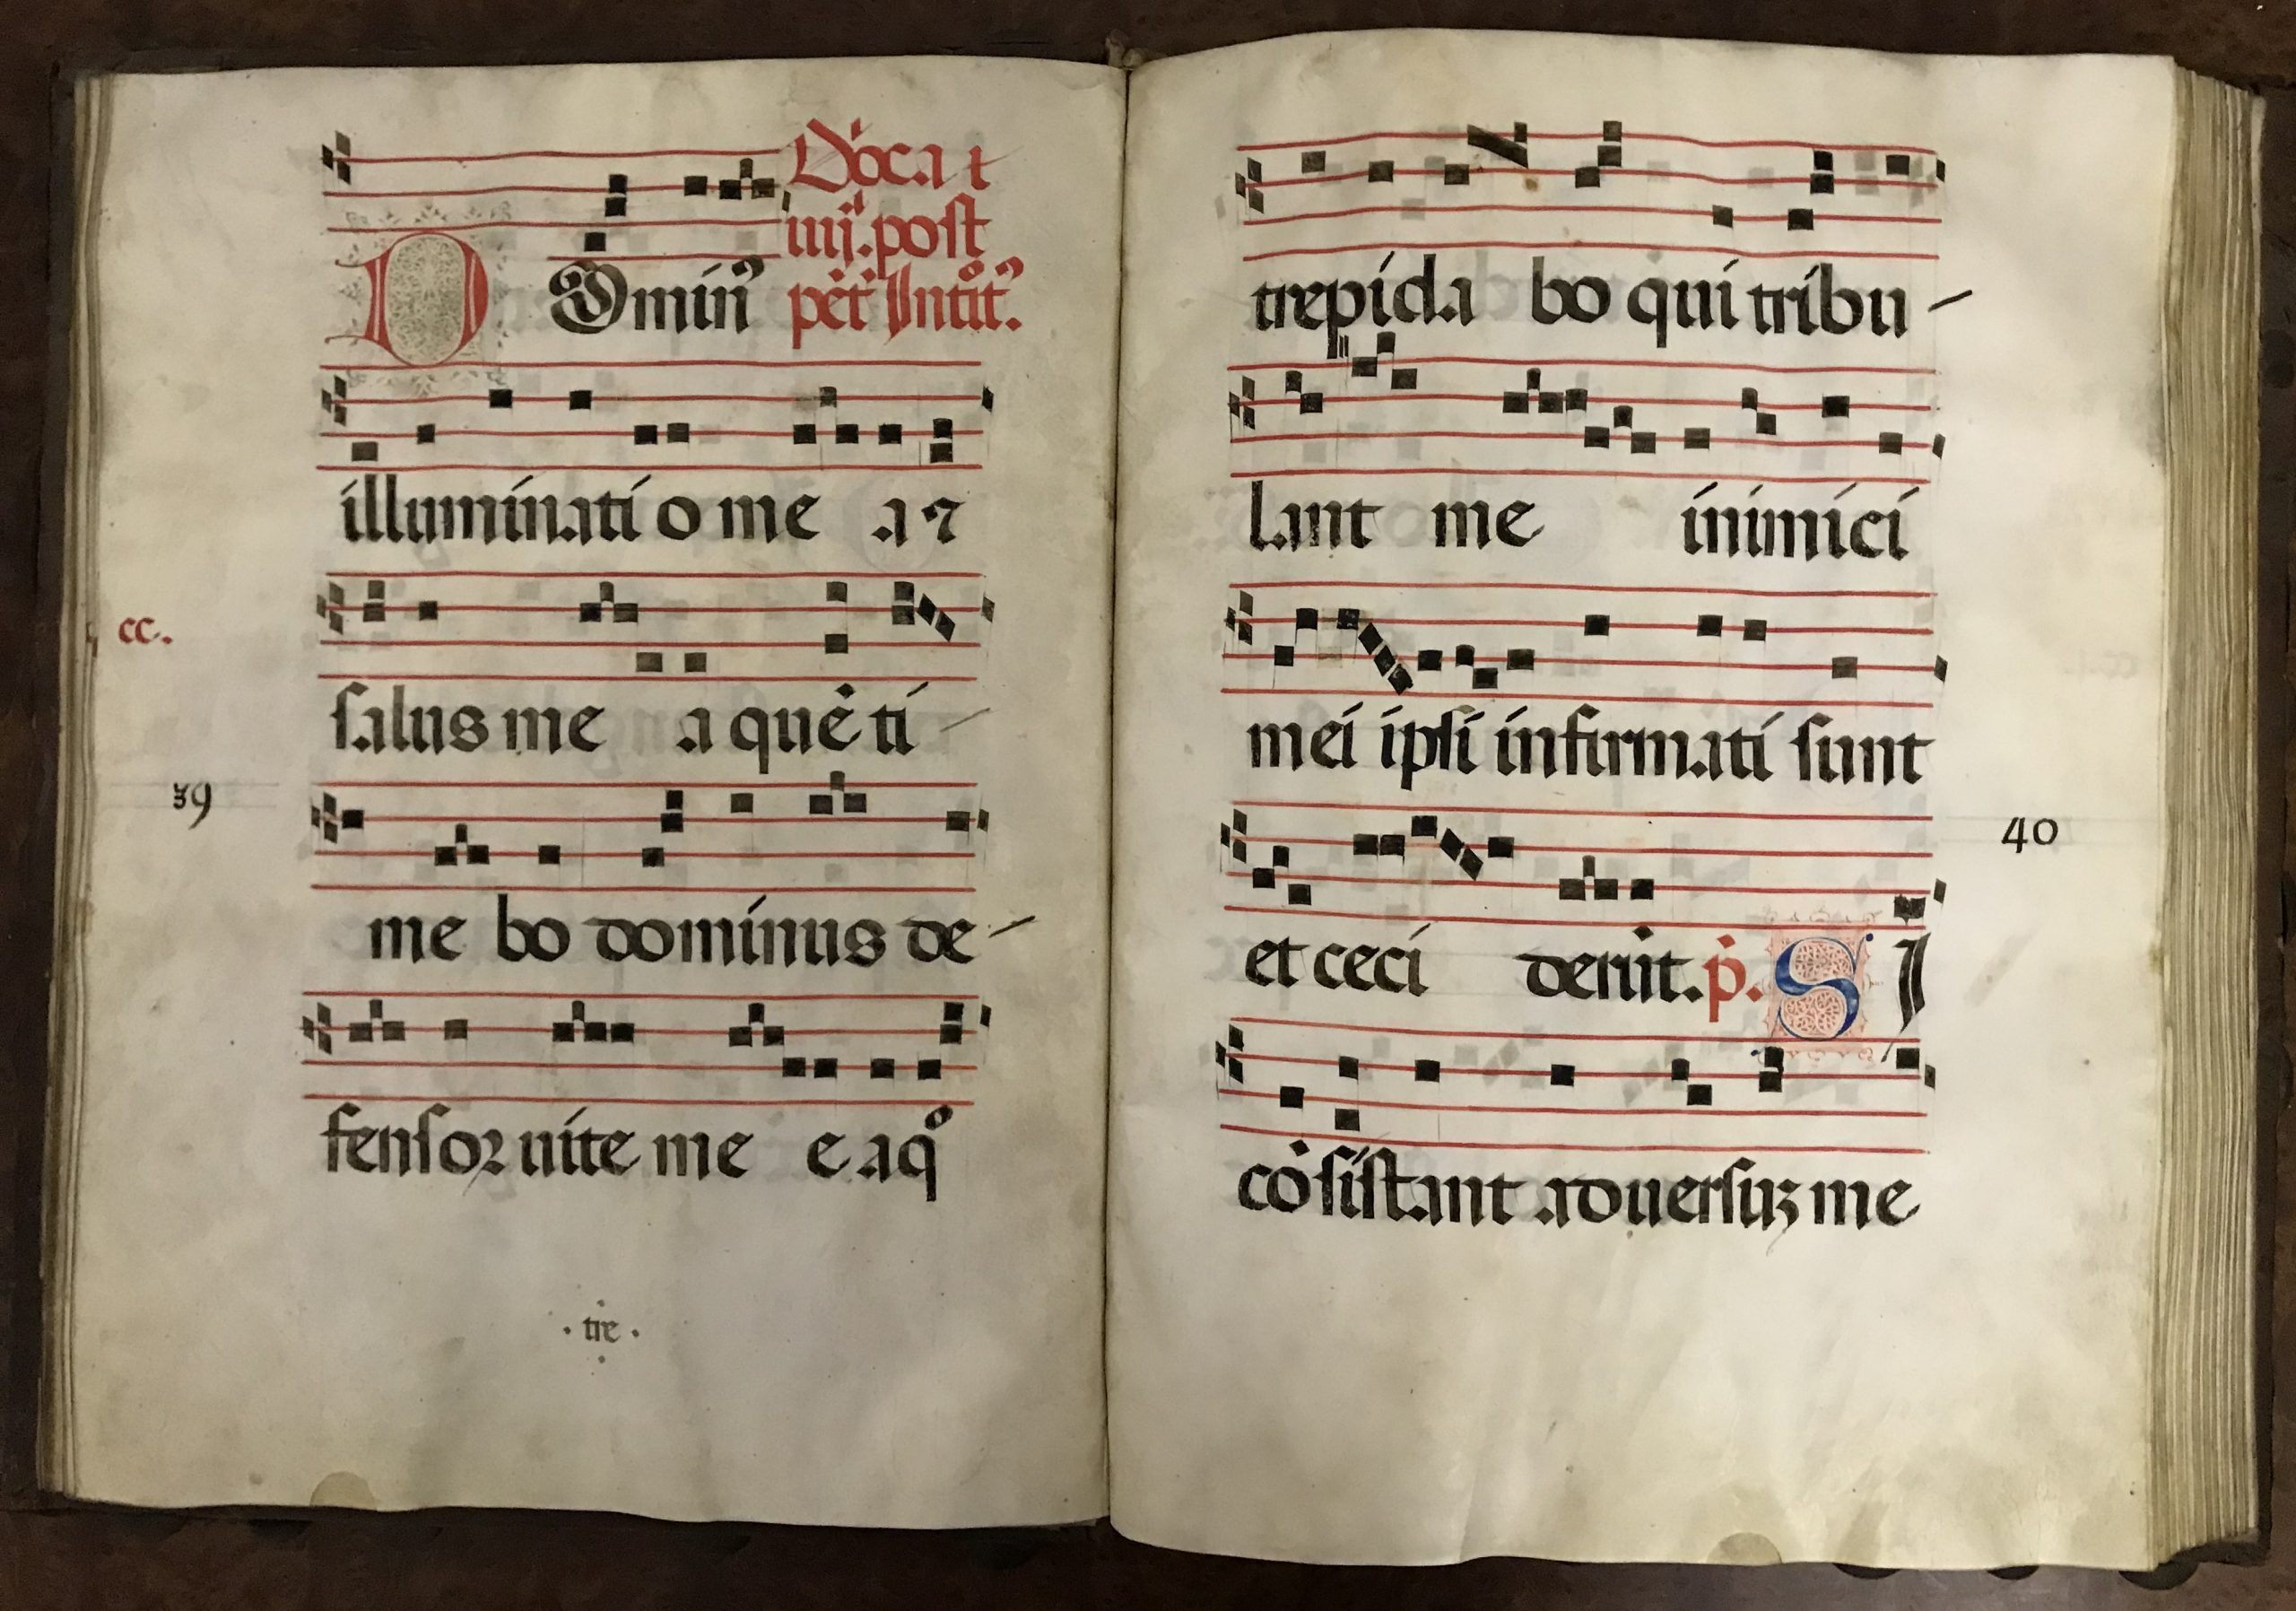 Dñica
iiij. post
pēt Introit9.
D Omin9
illuminatio mea ⁊
salus mea a quē ti
cc.
39
mebo dominus de
fensor uite mee a qº
·tre·
trepidabo qui tribu
lant me inimici
mei ipsi infirmati sunt
et ceciderūt. p̄. SI
40
cōsistant aduersuȝ me